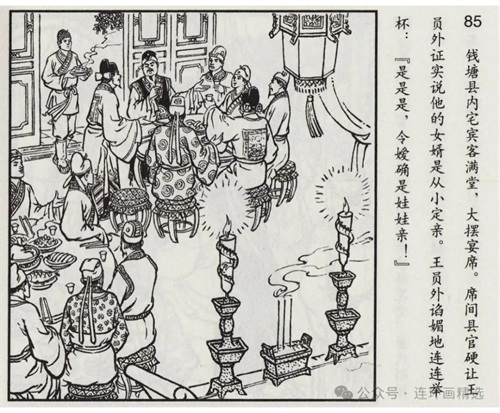 85
钱塘县内宅宾客满堂，大摆宴席。席间县官硬让王
员外证实说他的女婿是从小定亲。王员外谄媚地连连举
杯：『是是是，令嫒确是娃娃亲！』
公众号·连环画精选